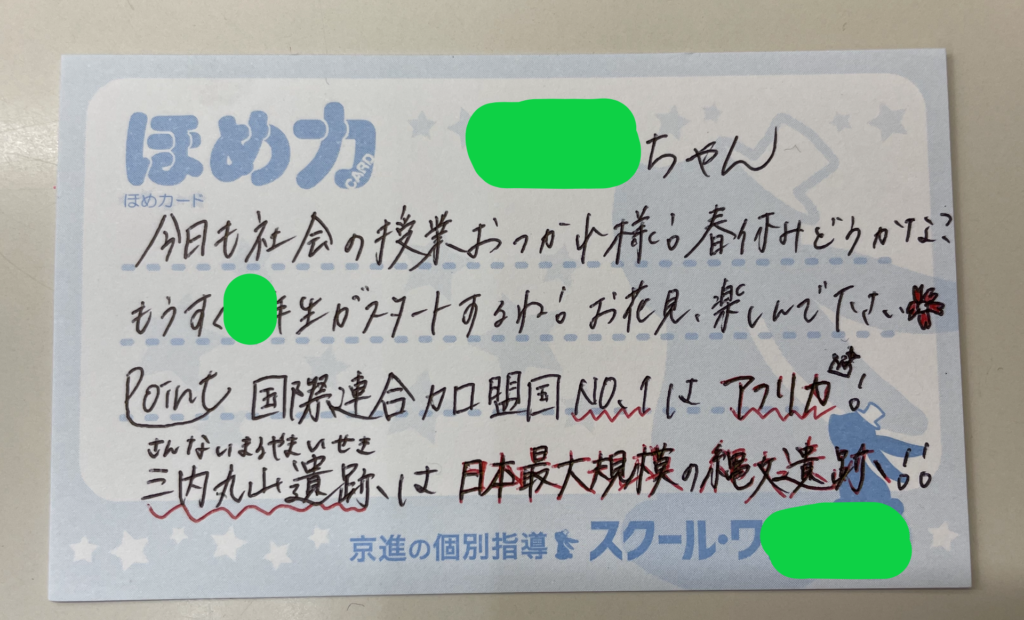 ほめ力
CARD
ほめカード
ちゃん
今日も社会の授業おつかれ様!春休みどうかな?
もうすぐ年生がスタートするね!お花見、楽しんで下さい
Point 国際連合加盟国NO.1はアフリカ!
さんないまるやまいせき
三内丸山遺跡、は日本最大規模の縄文遺跡、!!
京進の個別指導 スクール・ワ